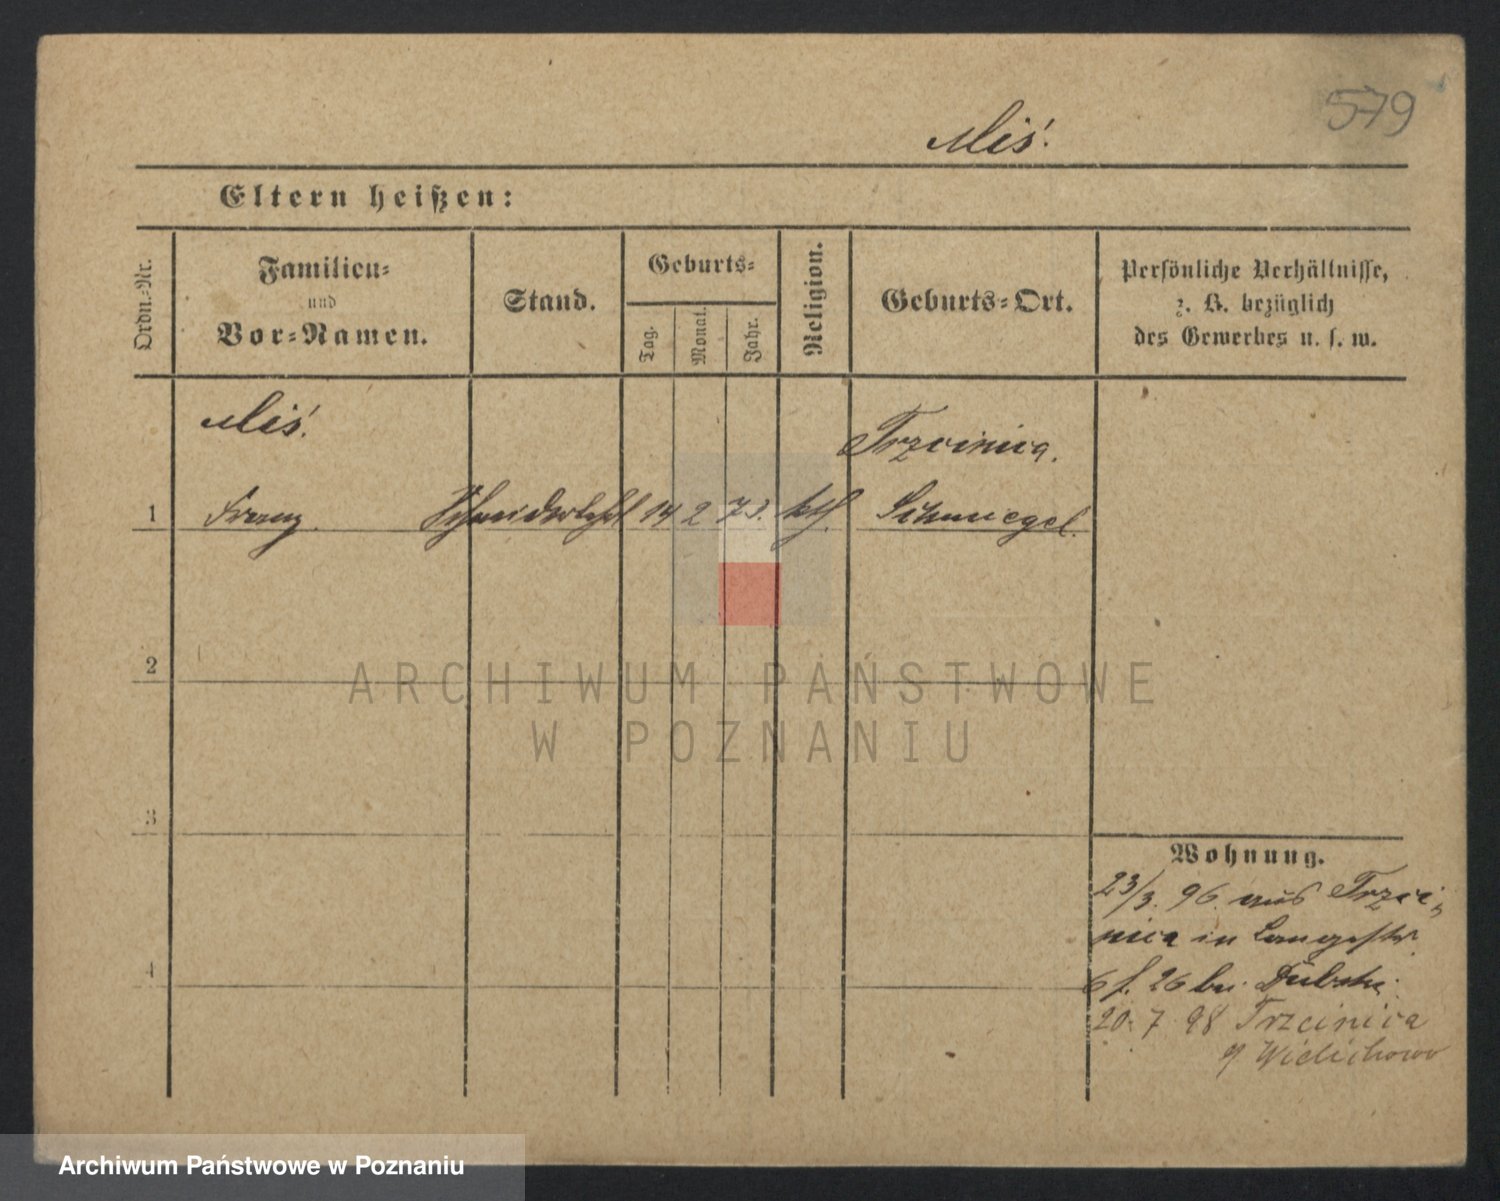 579
Miś.
Eltern heißen:
Ordn.-Nr.
Familien-
und
Vor-Namen.
Stand.
Geburts-
Tag.
Monat.
Jahr.
Religion.
Geburts-Ort.
Persönliche Verhältnisse,
z. B. bezüglich
des Gewerbes u. s. w.
Miś.
Trzcinica.
1 Franz. Schneiderlehrl 14 2 73. kth. Schmiegel.
2
3
4
Wohnung.
23/3. 96. aus Trzci-
nica in Langestr
6 f. 26 bei
20. 7 98 Trzcinica
Wielichowo
ARCHIWUM PAŃSTWOWE
W POZNANIU
Archiwum Państwowe w Poznaniu